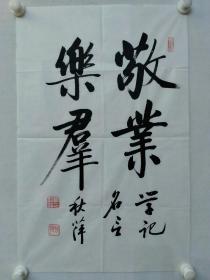 敬業
樂羣
学记
名言
秋萍